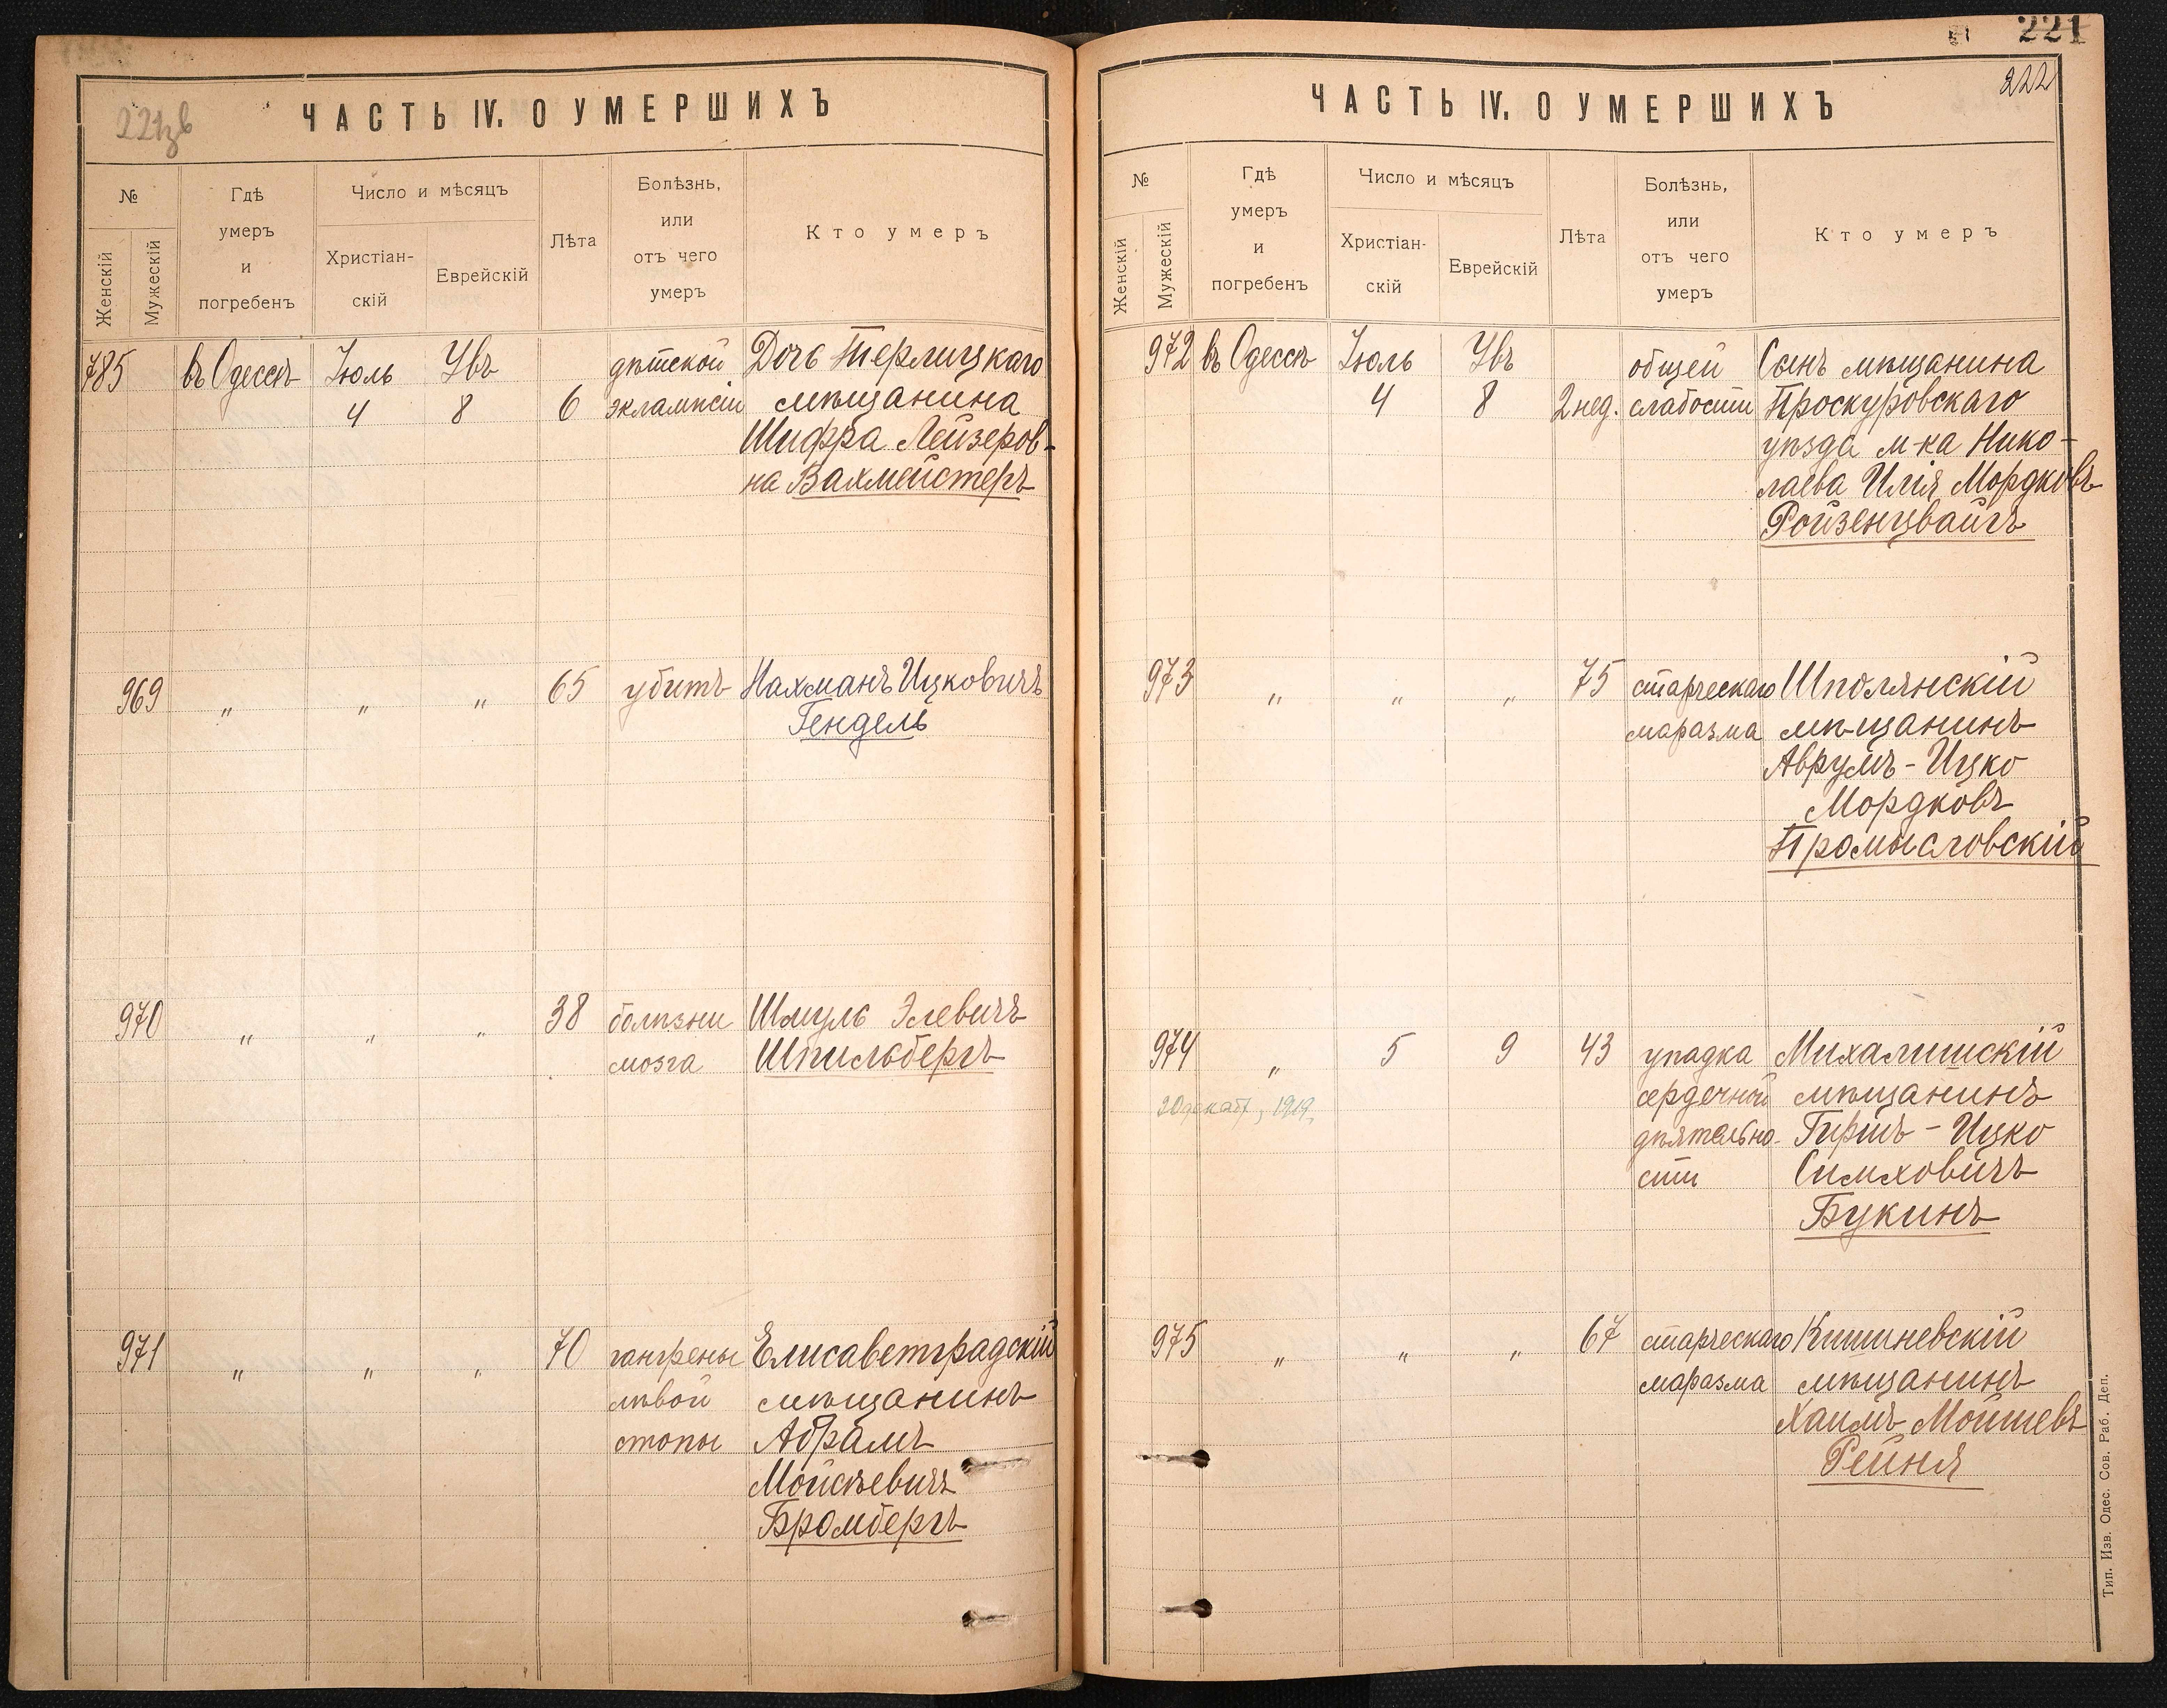 221зв
ЧАСТЬ IV. О УМЕРШИХЪ
№
Женскій
Мужескій
Гдѣ
умеръ
и
погребенъ
Число и мѣсяцъ
Христіан-
скій
Еврейскій
Лѣта
Болѣзнь,
или
отъ чего
умеръ
Кто умеръ
785 въ Одессѣ Іюль Увъ дѣтской Дочь Терлицкаго
4 8 6 эклампсіи мѣщанина
Шифра Лейзеров-
на Вахмейстеръ
969 " " " 65 убитъ Нахманъ Ицковичъ
Гендель
970 " " " 38 болѣзни Шмуль Элевичъ
мозга Шпильбергъ
971 " " " 70 гангрены Елисаветградскій
лѣвой мѣщанинъ
стопы Абрамъ
Мойсѣевичъ
Бромбергъ
221
222
ЧАСТЬ IV. О УМЕРШИХЪ
№
Женскій
Мужескій
Гдѣ
умеръ
и
погребенъ
Число и мѣсяцъ
Христіан-
скій
Еврейскій
Лѣта
Болѣзнь,
или
отъ чего
умеръ
Кто умеръ
972 въ Одессѣ Іюль Увъ общей Сынъ мѣщанина
4 8 2 нед. слабости Проскуровскаго
уѣзда м-ка Нико-
лаева Илія Мордковъ
Ройзенцвайгъ
973 " " " 75 старческаго Шполянскій
маразма мѣщанинъ
Аврумъ-Ицко
Мордковъ
Промысловскій
974 " 5 9 43 упадка Михалишскій
20 декаб, 1919, сердечной мѣщанинъ
дѣятельно- Гиршъ-Ицко
сти Симховичъ
Букинъ
975 " " " 67 старческаго Кишиневскій
маразма мѣщанинъ
Хаимъ Мошевъ
Рейня
Тип. Изв. Одес. Сов. Раб. Деп.